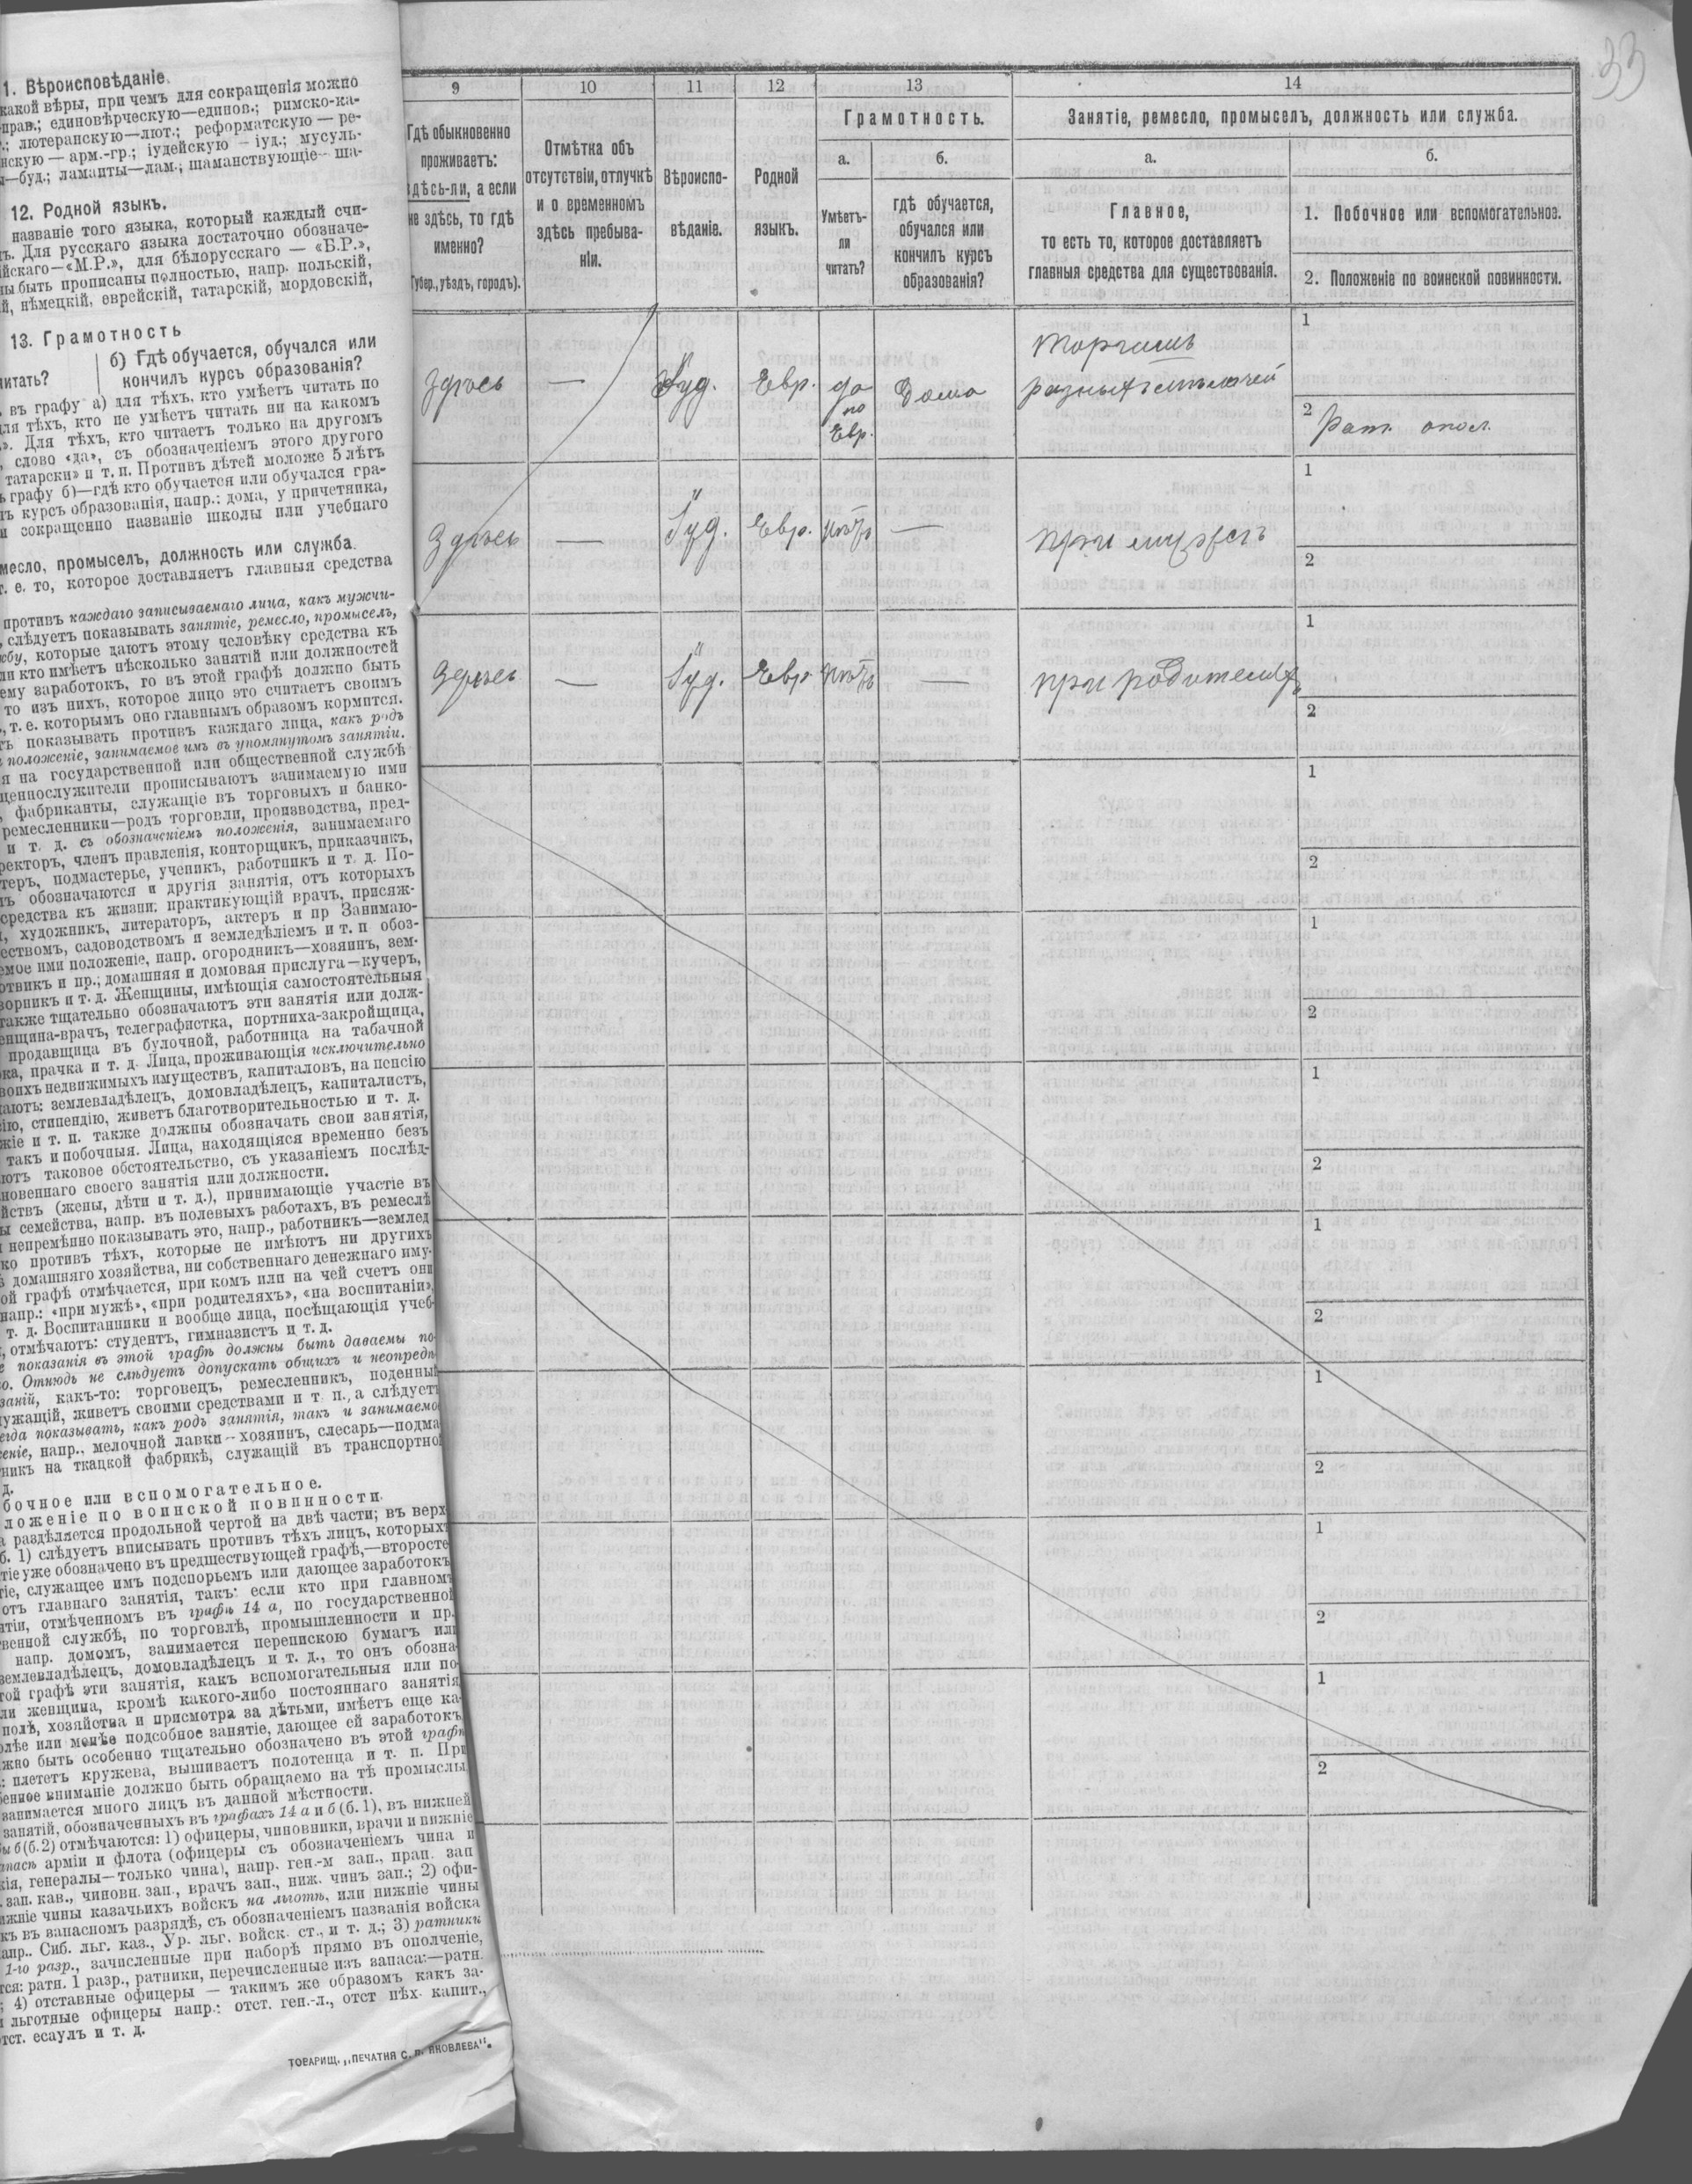 1. Вѣроисповѣданіе.
какой вѣры, при чемъ для сокращенія можно
прав.; единовѣрческую—единов.; римско-ка-
лютеранскую—лют.; реформатскую — ре-
нскую — арм.-гр.; іудейскую — іуд.; мусуль-
—буд.; ламаиты—лам.; шаманствующіе—ша-
12. Родной языкъ.
названіе того языка, который каждый счи-
Для русскаго языка достаточно обозначе-
йскаго—«М.Р.», для бѣлорусскаго — «Б.Р.»,
ны быть прописаны полностью, напр. польскій,
нѣмецкій, еврейскій, татарскій, мордовскій,
13. Грамотность
читать?
б) Гдѣ обучается, обучался или
кончилъ курсъ образованія?
въ графу а) для тѣхъ, кто умѣетъ читать по
для тѣхъ, кто не умѣетъ читать ни на какомъ
Для тѣхъ, кто читаетъ только на другомъ
слово «да», съ обозначеніемъ этого другого
татарски» и т. п. Противъ дѣтей моложе 5 лѣтъ
графу б)—гдѣ кто обучается или обучался гра-
ъ курсъ образованія, напр.: дома, у причетника,
и сокращенно названіе школы или учебнаго
месло, промыселъ, должность или служба.
т. е. то, которое доставляетъ главныя средства
противъ каждаго записываемаго лица, какъ мужчи-
слѣдуетъ показывать занятіе, ремесло, промыселъ,
жбу, которые даютъ этому человѣку средства къ
ли кто имѣетъ нѣсколько занятій или должностей
ему заработокъ, то въ этой графѣ должно быть
то изъ нихъ, которое лицо это считаетъ своимъ
т. е. которымъ оно главнымъ образомъ кормится.
ъ показывать противъ каждаго лица, какъ родъ
положеніе, занимаемое имъ въ упомянутомъ занятіи.
я на государственной или общественной службѣ
щеннослужители прописываютъ занимаемую ими
фабриканты, служащіе въ торговыхъ и банко-
ремесленники—родъ торговли, производства, пред-
и т. д. съ обозначеніемъ положенія, занимаемаго
ректоръ, членъ правленія, конторщикъ, приказчикъ,
теръ, подмастерье, ученикъ, работникъ и т. д. По-
ъ обозначаются и другія занятія, отъ которыхъ
средства къ жизни: практикующій врачъ, присяж-
художникъ, литераторъ, актеръ и пр Занимаю-
ествомъ, садоводствомъ и земледѣліемъ и т. п обоз-
емое ими положеніе, напр. огородникъ—хозяинъ, зем-
отвикъ и пр.; домашняя и домовая прислуга—кучеръ,
ворникъ и т. д. Женщины, имѣющія самостоятельныя
также тщательно обозначаютъ эти занятія или долж-
енщина-врачъ, телеграфистка, портниха-закройщица,
продавщица въ булочной, работница на табачной
ка, прачка и т. д. Лица, проживающія исключительно
воихъ недвижимыхъ имуществъ, капиталовъ, на пенсію
аютъ: землевладѣлецъ, домовладѣлецъ, капиталистъ,
ію, стипендію, живетъ благотворительностью и т. д.
жіе и т. п. также должны обозначать свои занятія,
такъ и побочныя. Лица, находящіяся временно безъ
ютъ таковое обстоятельство, съ указаніемъ послѣд-
новеннаго своего занятія или должности.
йствъ (жены, дѣти и т. д.), принимающіе участіе въ
ы семейства, напр. въ полевыхъ работахъ, въ ремеслѣ
непремѣнно показывать это, напр., работникъ—землед
ко противъ тѣхъ, которые не имѣютъ ни другихъ
домашняго хозяйства, ни собственнаго денежнаго иму-
ой графѣ отмѣчается, при комъ или на чей счетъ они
напр.: «при мужѣ», «при родителяхъ», «на воспитаніи»,
т. д. Воспитанники и вообще лица, посѣщающія учеб-
отмѣчаютъ: студентъ, гимназистъ и т. д.
е показанія въ этой графѣ должны быть даваемы по
о. Отнюдь не слѣдуетъ допускать общихъ и неопредѣ
заній, какъ-то: торговецъ, ремесленникъ, поденный
ужащій, живетъ своими средствами и т. п., а слѣдуетъ
егда показывать, какъ родъ занятія, такъ и занимаемо
еніе, напр., мелочной лавки—хозяинъ, слесарь—подма
никъ на ткацкой фабрикѣ, служащій въ транспортной
д.
бочное или вспомогательное.
ложеніе по воинской повинности.
а раздѣляется продольной чертой на двѣ части; въ верх
б. 1) слѣдуетъ вписывать противъ тѣхъ лицъ, которыхъ
тіе уже обозначено въ предшествующей графѣ,—второсте
тіе, служащее имъ подспорьемъ или дающее заработокъ
отъ главнаго занятія, такъ: если кто при главномъ
ятіи, отмѣченномъ въ графѣ 14 а, по государственной
твенной службѣ, по торговлѣ, промышленности и пр.
напр. домомъ, занимается перепискою бумагъ или
землевладѣлецъ, домовладѣлецъ и т. д., то онъ обозна
той графѣ эти занятія, какъ вспомогательныя или по
ли женщина, кромѣ какого-либо постояннаго занятія
полѣ, хозяйства и присмотра за дѣтьми, имѣетъ еще ка
лѣе или менѣе подсобное занятіе, дающее ей заработокъ
жно быть особенно тщательно обозначено въ этой графѣ
: плететъ кружева, вышиваетъ полотенца и т. п. При
енное вниманіе должно быть обращаемо на тѣ промыслы
занимается много лицъ въ данной мѣстности.
занятій, обозначенныхъ въ графахъ 14 а и б (б. 1), въ нижней
ы б (б. 2) отмѣчаются: 1) офицеры, чиновники, врачи и нижніе
апасъ арміи и флота (офицеры съ обозначеніемъ чина и
кія, генералы—только чина), напр. ген.-м зап., прап. зап
зап. кав., чиновн. зап., врачъ зап., ниж. чинъ зап.; 2) офи-
жніе чины казачьихъ войскъ на льготѣ, или нижніе чины
къ въ запасномъ разрядѣ, съ обозначеніемъ названія войска
апр.. Сиб. льг. каз., Ур. льг. войск. ст., и т. д.; 3) ратники
1-го разр., зачисленные при наборѣ прямо въ ополченіе,
тся: ратн. 1 разр., ратники, перечисленные изъ запаса:—ратн.
4) отставные офицеры — такимъ же образомъ какъ за-
льготные офицеры напр.: отст. ген.-л., отст пѣх. капит.,
тст. есаулъ и т. д.
ТОВАРИЩ. „ПЕЧАТНЯ С. П. ЯКОВЛЕВА“.
33
9 10 11 12 13 14
Гдѣ обыкновенно
проживаетъ:
здѣсь-ли, а если
не здѣсь, то гдѣ
именно?
Губер., уѣздъ, городъ).
Отмѣтка объ
отсутствіи, отлучкѣ
и о временномъ
здѣсь пребыва-
ніи.
Вѣроиспо-
вѣданіе.
Родной
языкъ.
Грамотность.
а.
Умѣетъ-
ли
читать?
б.
гдѣ обучается,
обучался или
кончилъ курсъ
образованія?
Занятіе, ремесло, промыселъ, должность или служба.
а.
Главное,
то есть то, которое доставляетъ
главныя средства для существованія.
б.
1. Побочное или вспомогательное.
2. Положеніе по воинской повинности.
1
Торгашъ
здѣсь — Іуд. Евр. да Дома разныхъ мелочей
по
Евр.
2 Рат. опол.
1
Здѣсь — Іуд. Евр. нѣтъ — при мужѣ
2
1
Здѣсь — Іуд. Евр. нѣтъ — при родителяхъ
2
1
2
1
2
1
2
1
2
1
2
1
2
1
2